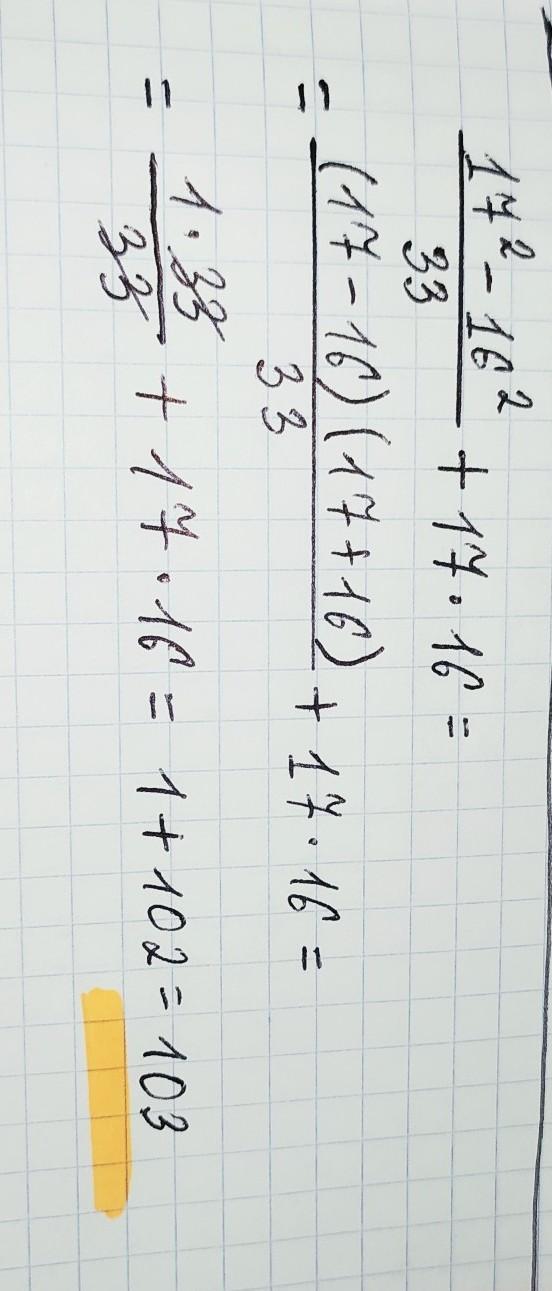 17² - 16² / 33 + 17 · 16 =
= (17 - 16)(17 + 16) / 33 + 17 · 16 =
= 1 · 33 / 33 + 17 · 16 = 1 + 102 = 103